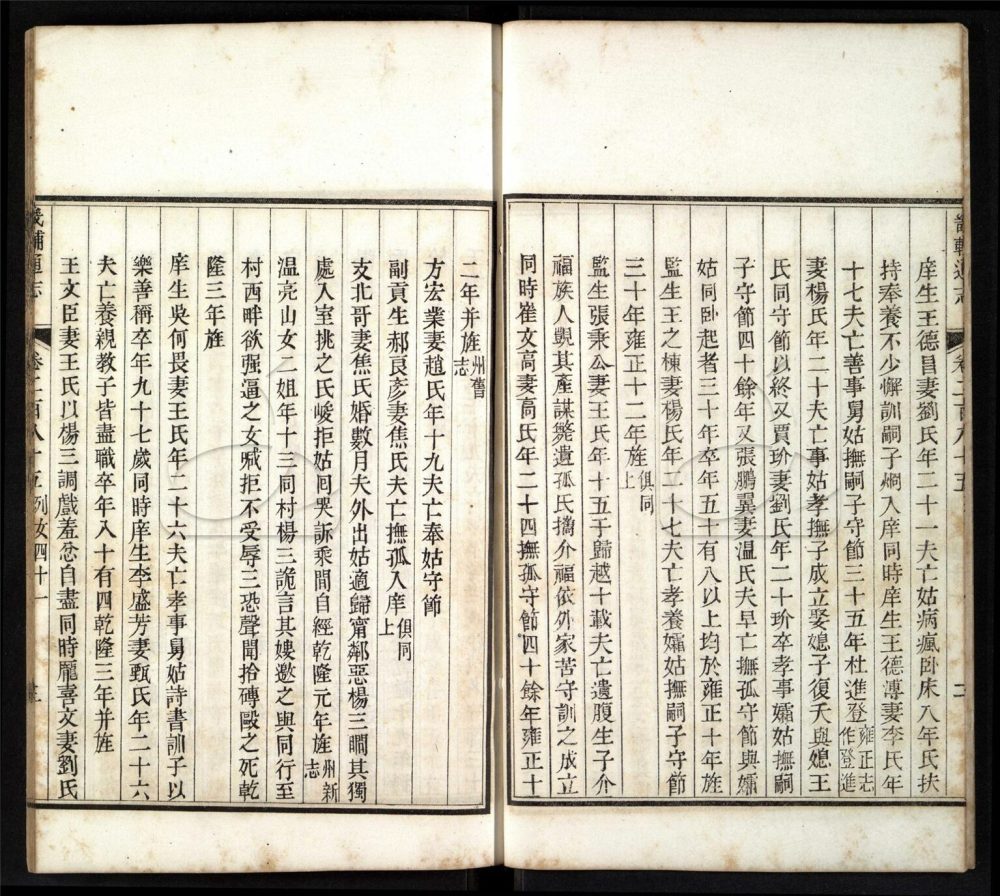 畿輔通志 卷二百八十五
庠生王德昌妻劉氏年二十一夫亡姑病瘋臥床八年氏扶
持奉養不少懈訓嗣子炯入庠同時庠生王德溥妻李氏年
十七夫亡善事舅姑撫嗣子守節三十五年杜進登雍正志作登進
妻楊氏年二十夫亡事姑孝撫子成立娶媳子復夭與媳王
氏同守節以終又賈玠妻劉氏年二十玠卒孝事孀姑撫嗣
子守節四十餘年又張鵬翼妻溫氏夫早亡撫孤守節與孀
姑同臥起者三十年卒年五十有八以上均於雍正十年旌
監生王之棟妻楊氏年二十七夫亡孝養孀姑撫嗣子守節
三十年雍正十二年旌俱同上
監生張秉公妻王氏年十五于歸越十載夫亡遺腹生子介
福族人覬其產謀斃遺孤氏攜介福依外家苦守訓之成立
同時崔文高妻高氏年二十四撫孤守節四十餘年雍正十
二年并旌州舊志
方宏業妻趙氏年十九夫亡奉姑守節
副貢生郝良彥妻焦氏夫亡撫孤入庠俱同上
支北哥妻焦氏婚數月夫外出姑適歸甯鄰惡楊三瞷其獨
處入室挑之氏峻拒姑囘哭訴乘間自經乾隆元年旌州新志
溫亮山女二姐年十三同村楊三詭言其嫂邀之與同行至
村西畔欲强逼之女喊拒不受辱三恐聲聞拾磚毆之死乾
隆三年旌
庠生吳何畏妻王氏年二十六夫亡孝事舅姑詩書訓子以
樂善稱卒年九十七歲同時庠生李盛芳妻甄氏年二十六
夫亡養親教子皆盡職卒年八十有四乾隆三年并旌
王文臣妻王氏以楊三調戲羞忿自盡同時龐喜文妻劉氏
畿輔通志 卷二百八十五列女四十一